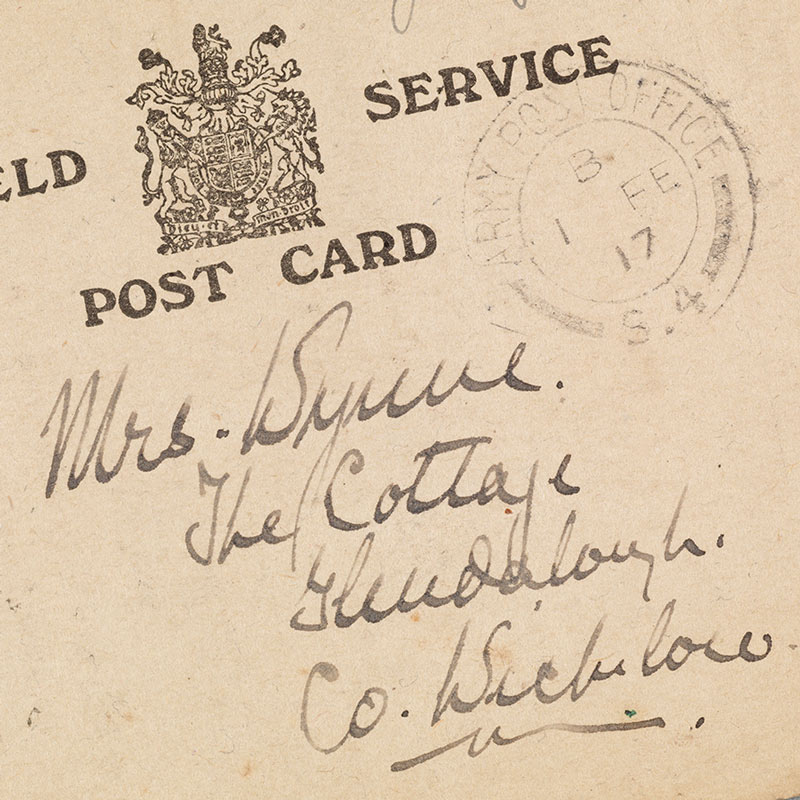 ELD SERVICE
Dieu et mon droit
POST CARD
ARMY POST OFFICE
B
1 FE
17
S.4
Mrs. Wynne.
The Cottage
Glendalough.
Co. Wicklow.